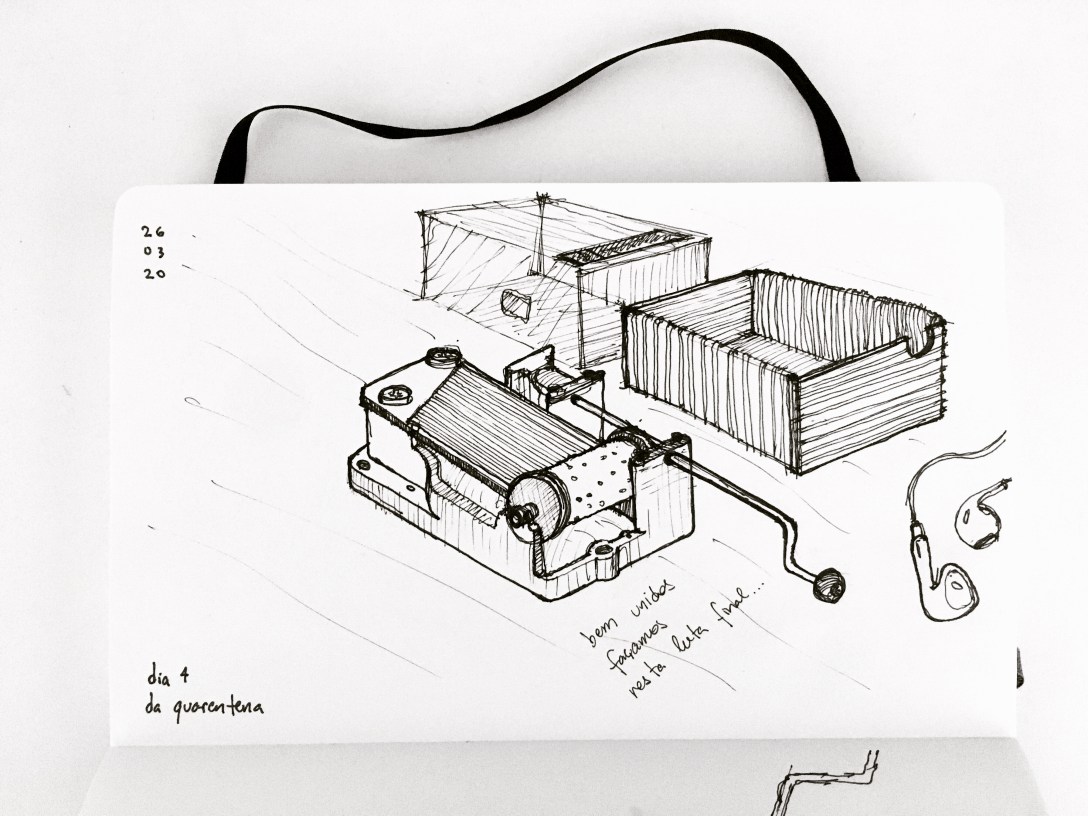 26
03
20
bem unidos
façamos
nesta luta final...
dia 4
da quarentena